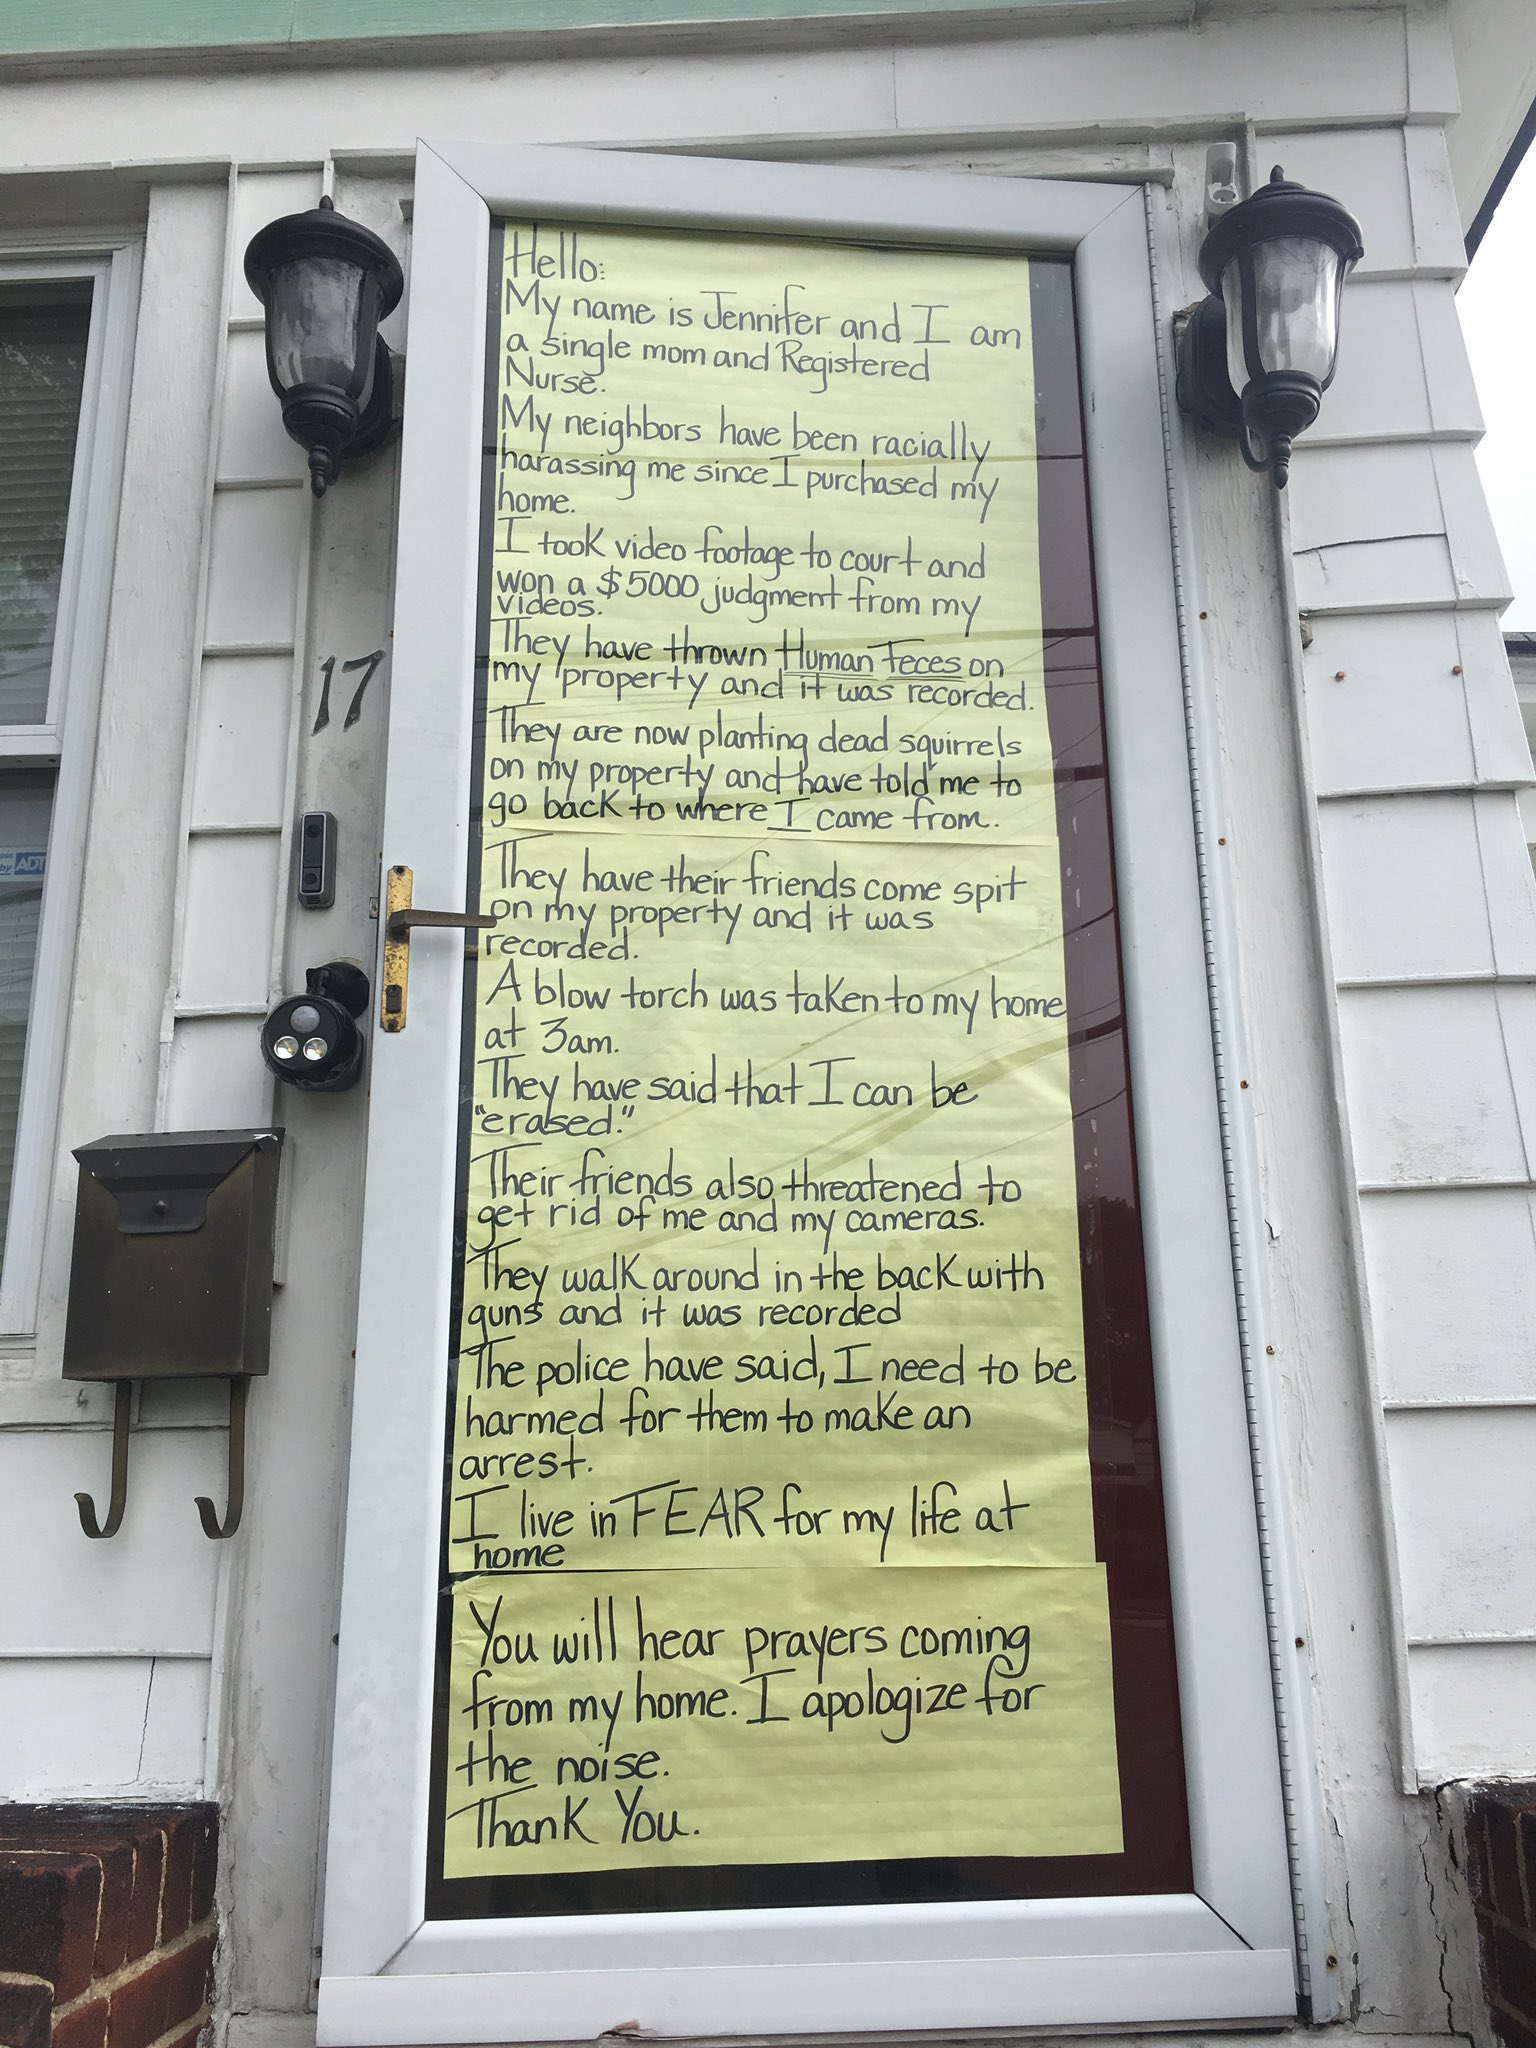 Hello:
My name is Jennifer and I am
a single mom and Registered
Nurse.
My neighbors have been racially
harassing me since I purchased my
home.
I took video footage to court and
won a $5000 judgment from my
videos.
They have thrown Human Feces on
my property and it was recorded.
They are now planting dead squirrels
on my property and have told me to
go back to where I came from.
They have their friends come spit
on my property and it was
recorded.
A blow torch was taken to my home
at 3am.
They have said that I can be
"erased."
Their friends also threatened to
get rid of me and my cameras.
They walk around in the back with
guns and it was recorded
The police have said, I need to be
harmed for them to make an
arrest.
I live in FEAR for my life at
home
You will hear prayers coming
from my home. I apologize for
the noise.
Thank You.
17
by ADT